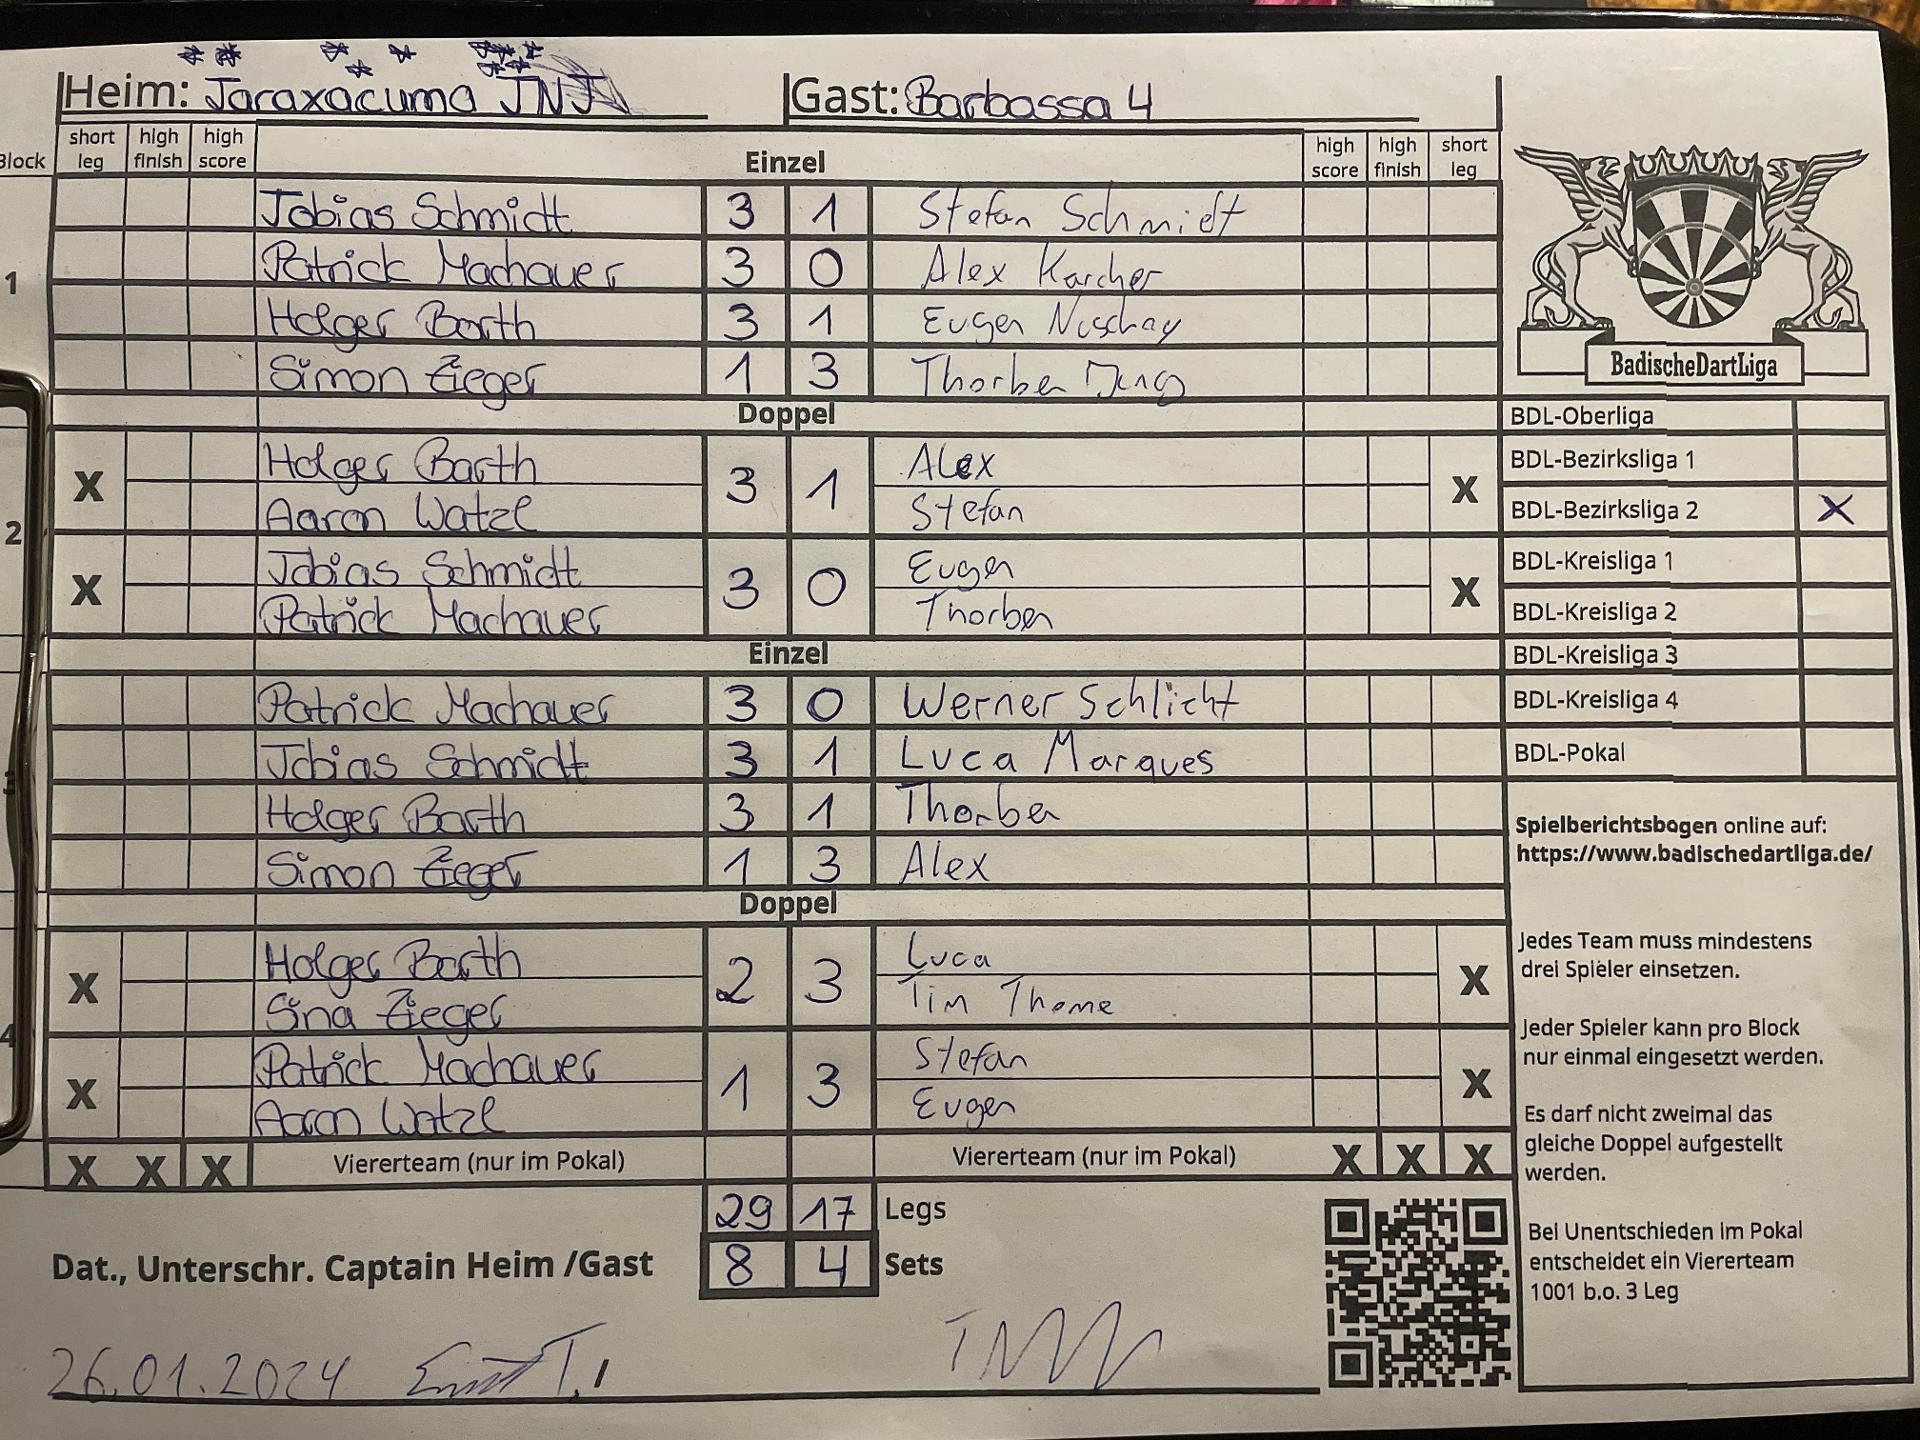 Heim: Taraxacuma TNT
Gast: Barbossa 4
Block short leg high finish high score Einzel high score high finish short leg
1
Tobias Schmidt 3 1 Stefan Schmidt
Patrick Machauer 3 0 Alex Karcher
Holger Barth 3 1 Eugen
Simon Zieger 1 3 Thorben Jung
Doppel
2
X Holger Barth 3 1 Alex X
Aaron Watzl Stefan
X Tobias Schmidt 3 0 Eugen X
Patrick Machauer Thorben
Einzel
3
Patrick Machauer 3 0 Werner Schlicht
Tobias Schmidt 3 1 Luca Marques
Holger Barth 3 1 Thorben
Simon Zieger 1 3 Alex
Doppel
4
X Holger Barth 2 3 Luca X
Sina Zieger Tim Thome
X Patrick Machauer 1 3 Stefan X
Aaron Watzl Eugen
X X X Viererteam (nur im Pokal) Viererteam (nur im Pokal) X X X
29 17 Legs
Dat., Unterschr. Captain Heim /Gast 8 4 Sets
26.01.2024
BadischeDartLiga
BDL-Oberliga
BDL-Bezirksliga 1
BDL-Bezirksliga 2 X
BDL-Kreisliga 1
BDL-Kreisliga 2
BDL-Kreisliga 3
BDL-Kreisliga 4
BDL-Pokal
Spielberichtsbogen online auf:
https://www.badischedartliga.de/
Jedes Team muss mindestens
drei Spieler einsetzen.
Jeder Spieler kann pro Block
nur einmal eingesetzt werden.
Es darf nicht zweimal das
gleiche Doppel aufgestellt
werden.
Bei Unentschieden im Pokal
entscheidet ein Viererteam
1001 b.o. 3 Leg